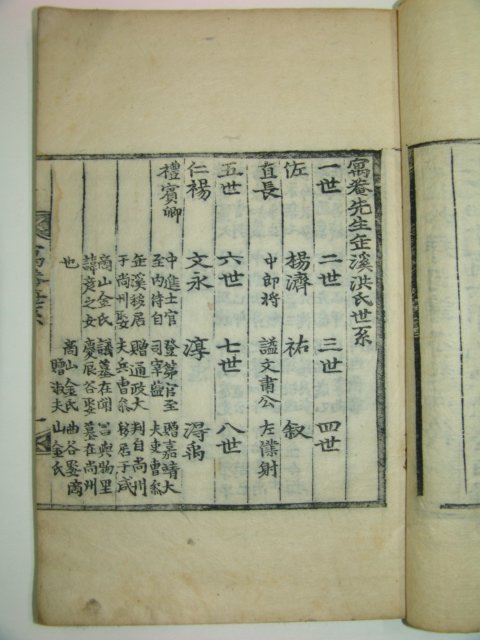 寓菴先生缶溪洪氏世系
一世 二世 三世 四世
佐 楊濟 祐 敍
直長 中郎將 謚文肅公 左僕射
五世 六世 七世 八世
仁裼 文永 淳 得禹
禮賓卿 中進士官 登第官至 贈嘉靖大
至內侍自 司宰監 夫吏曹參
缶溪移居 贈通政大 判自尚州
于尚州娶 夫兵曹參 移居于咸
商山金氏 議墓在聞 昌與物里
諱之女 慶辰谷娶 墓在尚州
也 商山金氏 曲谷娶商
贈淑夫 山金氏
寓菴世系 一